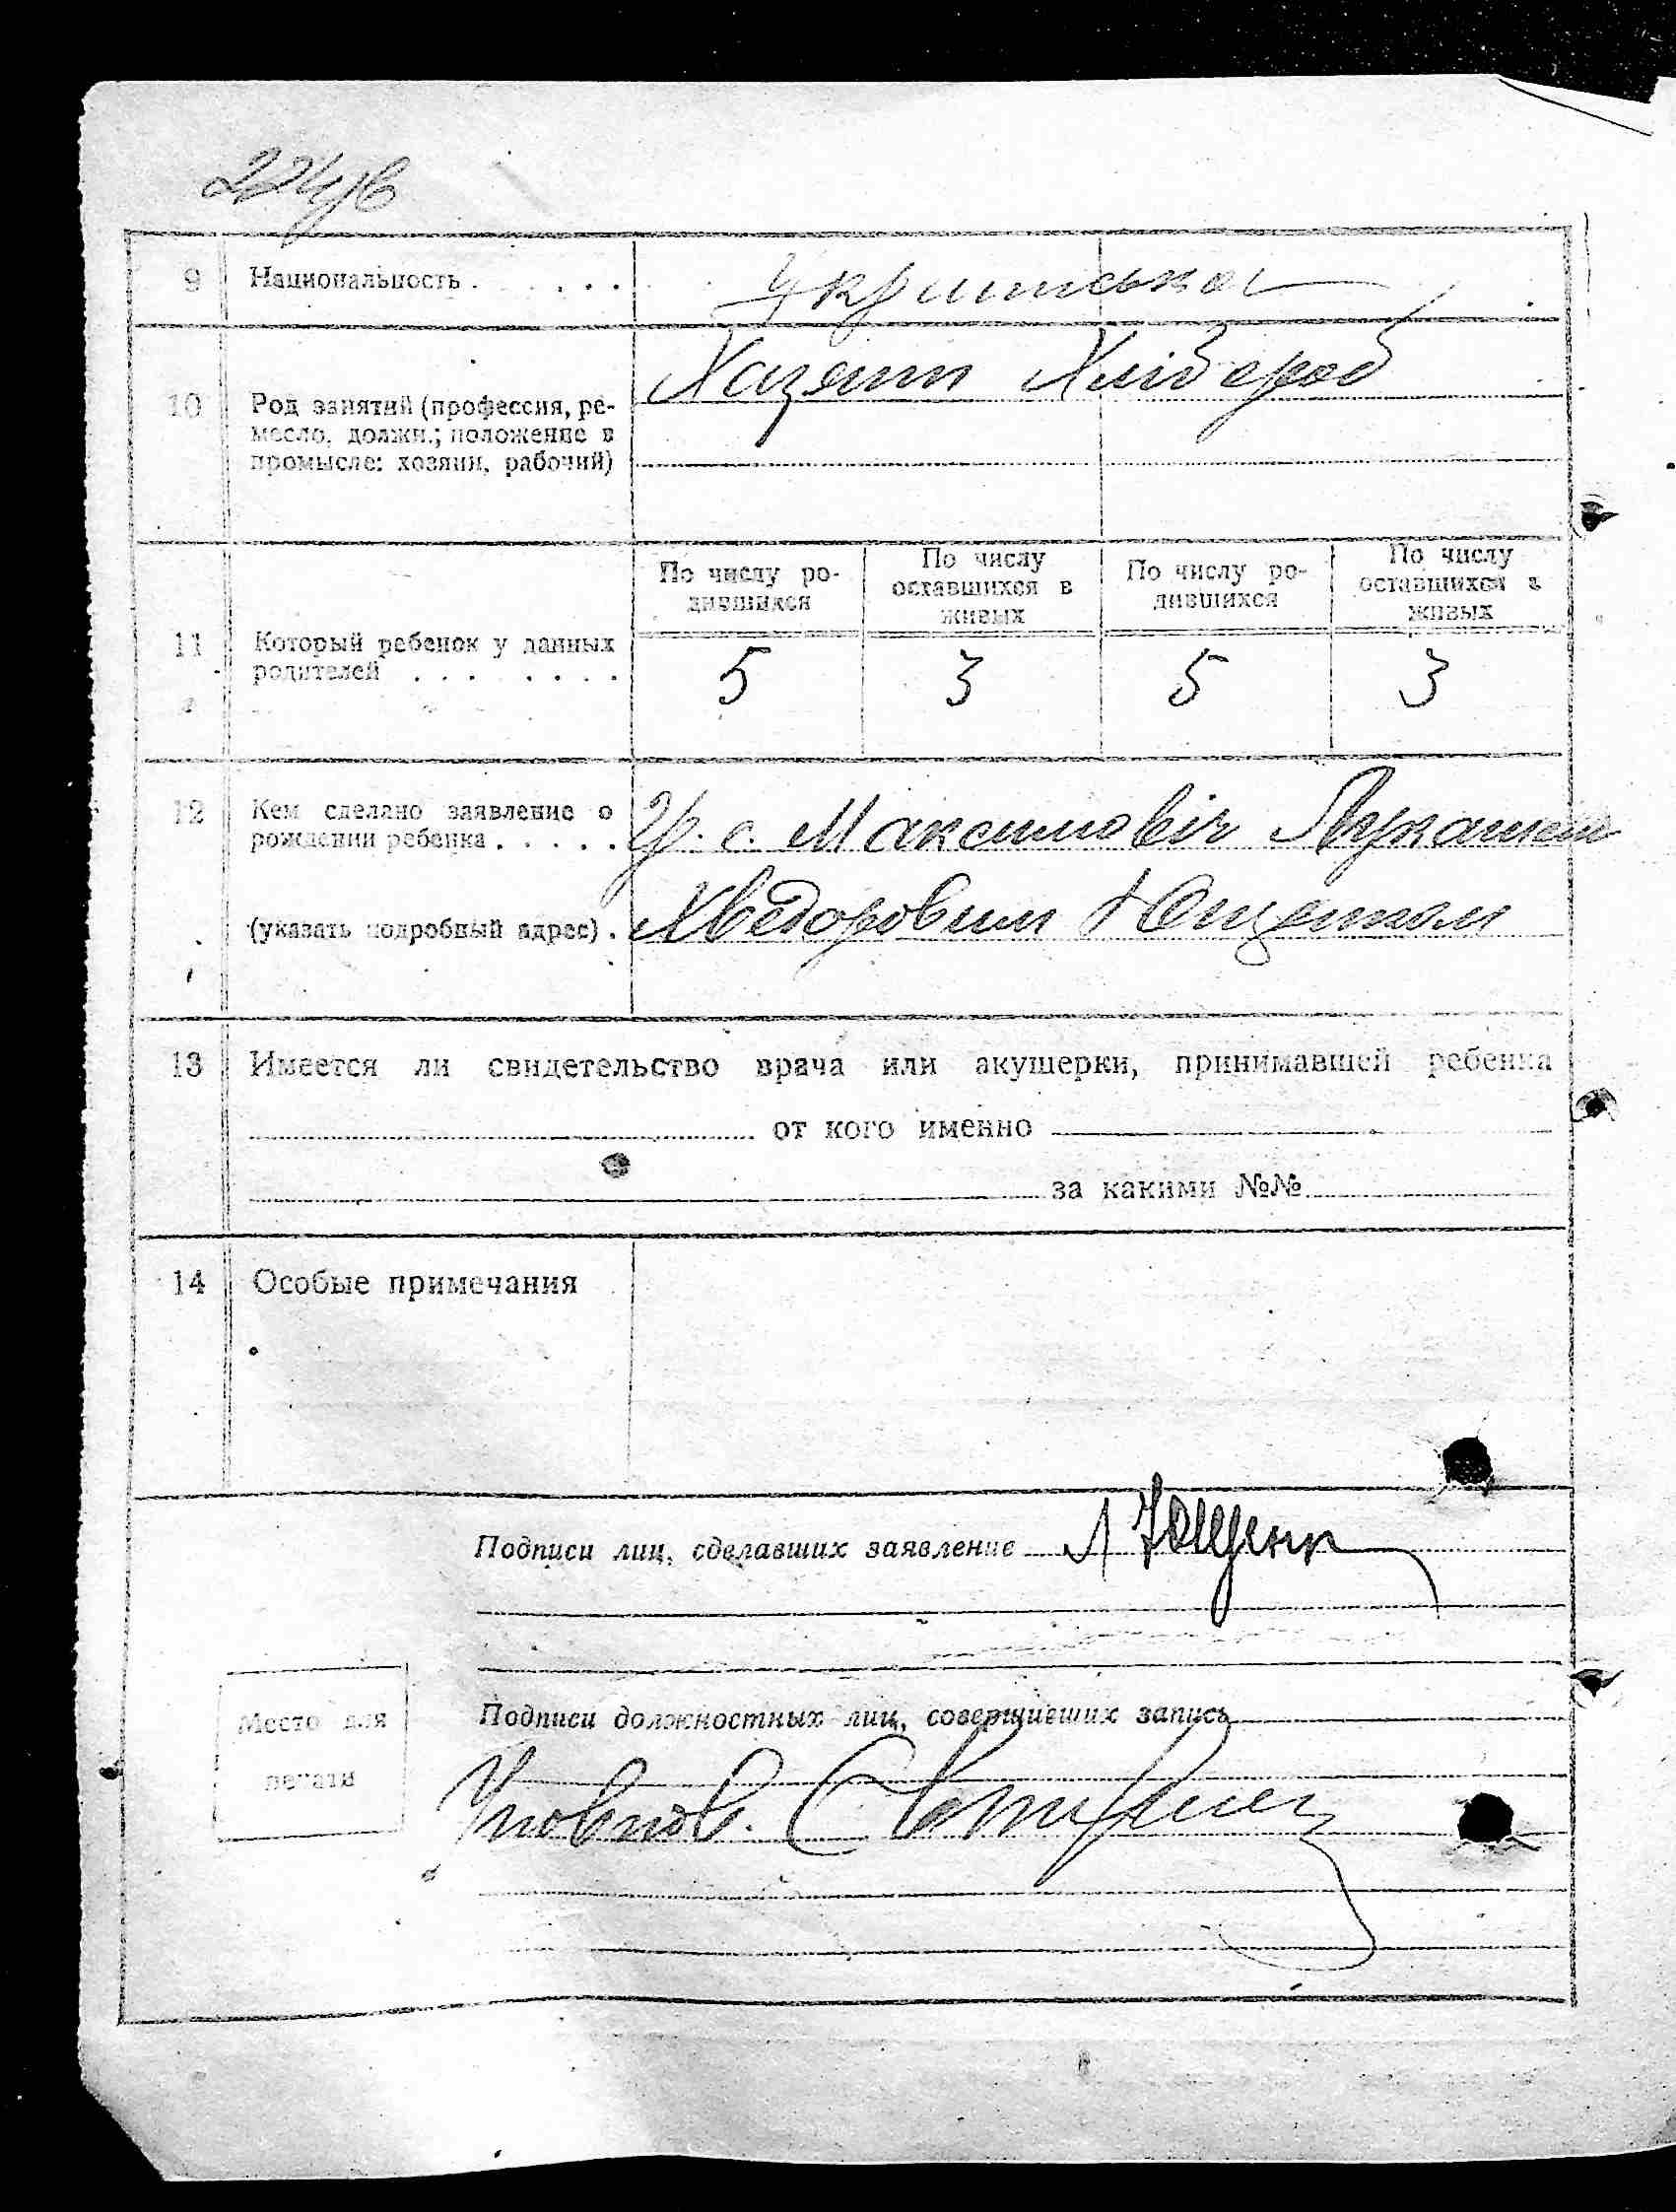 224/в
9 Национальность . . . . . Українська
Хазяїн Хлібороб
10 Род занятий (профессия, ре-
месло, должн.; положение в
промысле: хозяин, рабочий)
По числу ро-
дившихся
По числу
оставшихся в
живых
По числу ро-
дившихся
По числу
оставшихся в
живых
11 Который ребенок у данных
родителей . . . . . . . 5 3 5 3
12 Кем сделано заявление о
рождении ребенка . . . . . Гр. с. Максимовіч Лукашем
(указать подробный адрес) . Хведоровим Ющенком
13 Имеется ли свидетельство врача или акушерки, принимавшей ребенка
от кого именно
за какими №№
14 Особые примечания
Подписи лиц, сделавших заявление Л Ющенк
Место для
печати
Подписи должностных лиц, совершивших запись